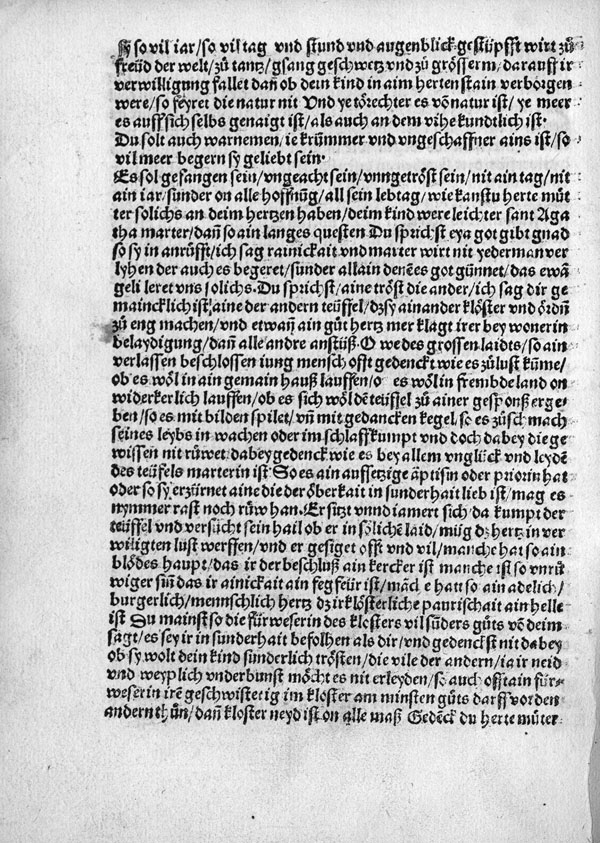 sy so vil iar/so vil tag vnd stund vnd augenblick gestüpfft wirt zů
freüd der welt/zů tantz/gsang geschwetz vnd zů grösserm/darauff ir
verwilligung fallet dañ ob dein kind in aim herten stain verborgen
were/so feyret die natur nit Vnd ye törechter es võ natur ist/ye meer
es auff sich selbs genaigt ist/als auch an dem vihe kundtlich ist.
Du solt auch warnemen/ie krümmer vnd vngeschaffner ains ist/so
vil meer begern sy geliebt sein.
Es sol gefangen sein/vngeacht sein/vnngetröst sein/nit ain tag/nit
ain iar/sunder on alle hoffnũg/all sein lebtag/wie kanstu herte můt
ter solichs an deim hertzen haben/deim kind were leichter sant Aga
tha marter/dañ so ain langes questen Du sprichst eya got gibt gnad
so sy in anrüfft/ich sag rainickait vnd marter wirt nit yederman ver
lyhen der auch es begeret/sunder allain denẽ es got günnet/das ewã
geli leret vns solichs. Du sprichst/aine tröst die ander/ich sag dir ge
maincklich ist/aine der andern teüffel/dz sy ainander klöster vnd ördñ
zů eng machen/vnd etwañ ain gůt hertz mer klagt irer bey wonerin
belaydigung/dañ alle andre anstüß. O we des grossen laidts/so ain
verlassen beschlossen iung mensch offt gedenckt wie es zů lust kũme/
ob es wöl in ain gemain hauß lauffen/o es wöl in frembde land on
widerkerlich lauffen/ob es sich wöl dẽ teüffel zů ainer gesponß erge
ben/so es mit bilden spilet/vñ mit gedancken kegel, so es zů schmach
seines leybs in wachen oder im schlaff kumpt vnd doch dabey die ge
wissen nit růwet/dabey gedenck wie es bey allem vnglück vnd leydẽ
des teüfels marterin ist So es ain auffsetzige äptisin oder priorin hat
oder so sy erzürnet aine die der öberkait in sunderhait lieb ist/mag es
nymmer rast noch růw han. Er sitzt vnnd iamert sich da kumpt der
teüffel vnd versůcht sein hail ob er in sölichẽ laid/müg dz hertz in ver
wiligten lust werffen/vnd er gesiget offt vnd vil/manche hat so ain
blödes haupt/das ir der beschluß ain kercker ist manche ist so vnrů
wiger sũ das ir ainickait ain fegfeür ist/mãche hatt so ain adelich/
burgerlich/mennschlich hertz dz ir klösterliche paurischait ain helle
ist Du mainst so die fürweserin des klosters vil sũders gůts võ deim
sagt/es sey ir in sunderhait befolhen als dir/vnd gedenckst nit dabey
ob sy wolt dein kind sunderlich trösten/die vile der andern/ia ir neid
vnd weyplich vnderbunst möcht es nit erleyden/so auch offt ain für-
weserin irẽ geschwistertig im kloster am minsten gůts darff vor den
andern thůn/dañ kloster neyd ist on alle maß Gedẽck du herte můter